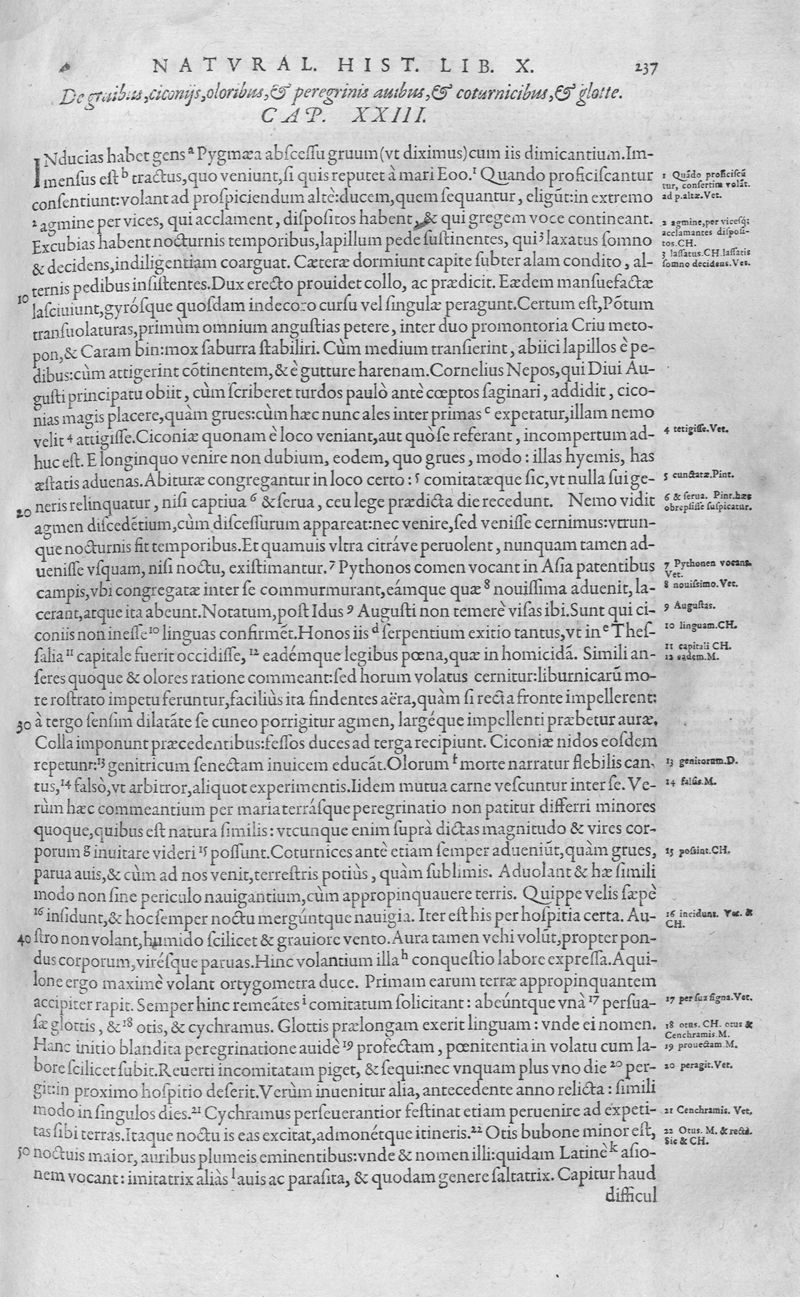 NATVRAL. HIST. LIB. X. 237
De gruibus, ciconijs, oloribus, & peregrinis auibus, & coturnicibus, & glotte.
CAP. XXIII.
INducias habet gens ᵃ Pygmæa abſceſſu gruum (vt diximus) cum iis dimicantium. Im-
menſus eſt ᵇ tractus, quo veniunt, ſi quis reputet à mari Eoo.¹ Quando proficiſcantur
conſentiunt: volant ad proſpiciendum altè: ducem, quem ſequantur, eligūt: in extremo
² agmine per vices, qui acclament, diſpoſitos habent, & qui gregem voce contineant.
Excubias habent nocturnis temporibus, lapillum pede ſuſtinentes, qui ³ laxatus ſomno
& decidens, indiligentiam coarguat. Cæteræ dormiunt capite ſubter alam condito, al-
ternis pedibus inſiſtentes. Dux erecto prouidet collo, ac prædicit. Eædem manſuefactæ
10 laſciuiunt, gyróſque quoſdam indecoro curſu vel ſingulæ peragunt. Certum eſt, Pōtum
tranſuolaturas, primùm omnium anguſtias petere, inter duo promontoria Criu meto-
pon, & Carambin: mox ſaburra ſtabiliri. Cùm medium tranſierint, abiici lapillos è pe-
dibus: cùm attigerint cōtinentem, & è gutture harenam. Cornelius Nepos, qui Diui Au-
guſti principatu obiit, cùm ſcriberet turdos paulò antè cœptos ſaginari, addidit, cico-
nias magis placere, quàm grues: cùm hæc nunc ales inter primas ᶜ expetatur, illam nemo
velit ⁴ attigiſſe. Ciconiæ quonam è loco veniant, aut quò ſe referant, incompertum ad-
huc eſt. E longinquo venire non dubium, eodem, quo grues, modo: illas hyemis, has
æſtatis aduenas. Abituræ congregantur in loco certo: ⁵ comitatæque ſic, vt nulla ſui ge-
20 neris relinquatur, niſi captiua ⁶ & ſerua, ceu lege prædicta die recedunt. Nemo vidit
agmen diſcedētium, cùm diſceſſurum appareat: nec venire, ſed veniſſe cernimus: vtrun-
que nocturnis fit temporibus. Et quamuis vltra citráve peruolent, nunquam tamen ad-
ueniſſe vſquam, niſi noctu, exiſtimantur. ⁷ Pythonos comen vocant in Aſia patentibus
campis, vbi congregatæ inter ſe commurmurant, eámque quæ ⁸ nouiſſima aduenit, la-
cerant, atque ita abeunt. Notatum, poſt Idus ⁹ Auguſti non temerè viſas ibi. Sunt qui ci-
coniis non ineſſe ¹⁰ linguas confirmēt. Honos iis ᵈ ſerpentium exitio tantus, vt in ᵉ Theſ-
ſalia ¹¹ capitale fuerit occidiſſe, ¹² eadémque legibus pœna, quæ in homicidā. Simili an-
ſeres quoque & olores ratione commeant: ſed horum volatus cernitur: liburnicarū mo-
re roſtrato impetu feruntur, faciliùs ita findentes aëra, quàm ſi recta fronte impellerent:
30 à tergo ſenſim dilatāte ſe cuneo porrigitur agmen, largéque impellenti præbetur auræ.
Colla imponunt præcedentibus: feſſos duces ad terga recipiunt. Ciconiæ nidos eoſdem
repetunt: ¹³ genitricum ſenectam inuicem educāt. Olorum ᶠ morte narratur flebilis can-
tus, ¹⁴ falsò, vt arbitror, aliquot experimentis. Iidem mutua carne veſcuntur inter ſe. Ve-
rùm hæc commeantium per maria terráſque peregrinatio non patitur differri minores
quoque, quibus eſt natura ſimilis: vtcunque enim ſuprà dictas magnitudo & vires cor-
porum ᵍ inuitare videri ¹⁵ poſſunt. Coturnices antè etiam ſemper adueniūt, quàm grues,
parua auis, & cùm ad nos venit, terreſtris potiùs, quàm ſublimis. Aduolant & hæ ſimili
modo non ſine periculo nauigantium, cùm appropinquauere terris. Quippe velis ſæpè
¹⁶ inſidunt, & hoc ſemper noctu mergúntque nauigia. Iter eſt his per hoſpitia certa. Au-
40 ſtro non volant, humido ſcilicet & grauiore vento. Aura tamen vehi volūt, propter pon-
dus corporum, viréſque paruas. Hinc volantium illa ʰ conqueſtio labore expreſſa. Aqui-
lone ergo maximè volant ortygometra duce. Primam earum terræ appropinquantem
accipiter rapit. Semper hinc remeātes ⁱ comitatum ſolicitant: abeúntque vnà ¹⁷ perſua-
ſæ glottis, & ¹⁸ otis, & cychramus. Glottis prælongam exerit linguam: vnde ei nomen.
Hanc initio blandita peregrinatione auidè ¹⁹ profectam, pœnitentia in volatu cum la-
bore ſcilicet ſubit. Reuerti incomitatam piget, & ſequi: nec vnquam plus vno die ²⁰ per-
git: in proximo hoſpitio deſerit. Verùm inuenitur alia, antecedente anno relicta: ſimili
modo in ſingulos dies. ²¹ Cychramus perſeuerantior feſtinat etiam peruenire ad expeti-
tas ſibi terras. Itaque noctu is eas excitat, admonétque itineris. ²² Otis bubone minor eſt,
50 noctuis maior, auribus plumeis eminentibus: vnde & nomen illi: quidam Latinè ᵏ aſio-
nem vocant: imitatrix aliàs ˡ auis ac paraſita, & quodam genere ſaltatrix. Capitur haud
difficul
1 Quādo proficiſcūtur, conſertim volāt.
ad p. altæ. Vet.
2 agmine, per viceſq;
acclamantes diſpoſi-
tos. CH.
3 laſſatus. CH. laſſatis
ſomno decidens. Vet.
4 tetigiſſe. Vet.
5 cunctatæ. Pint.
6 & ſerua. Pint. hæc
obrepſiſſe ſuſpicatur.
7 Pythonen vocant.
Vet.
8 nouiſſimo. Vet.
9 Auguſtas.
10 linguam. CH.
11 capitali CH.
12 eadem. M.
13 genitorum. D.
14 falſus. M.
15 poſſint. CH.
16 incidunt. Vet. &
CH.
17 per ſua ſigna. Vet.
18 otus. CH. otus &
Cenchramis. M.
19 prouectam. M.
20 peragit. Vet.
21 Cenchramis. Vet.
22 Otus. M. & rectè.
Sic & CH.